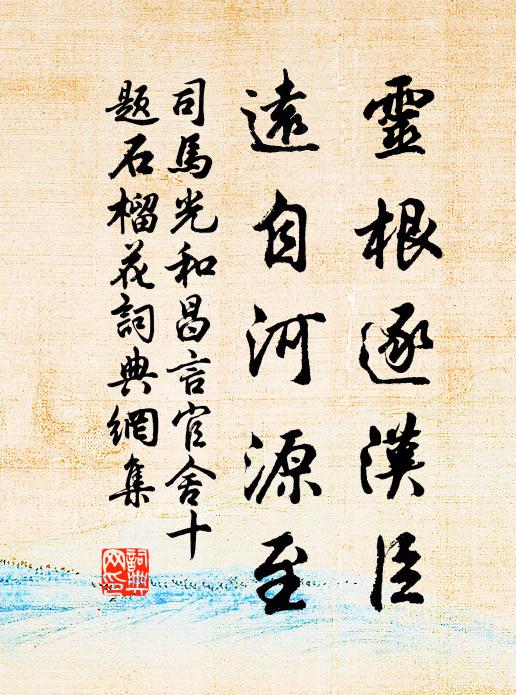 靈根逐漢臣
遠自河源至
司馬光和昌言官舍十
題石榴花詞典網集
詞典網印